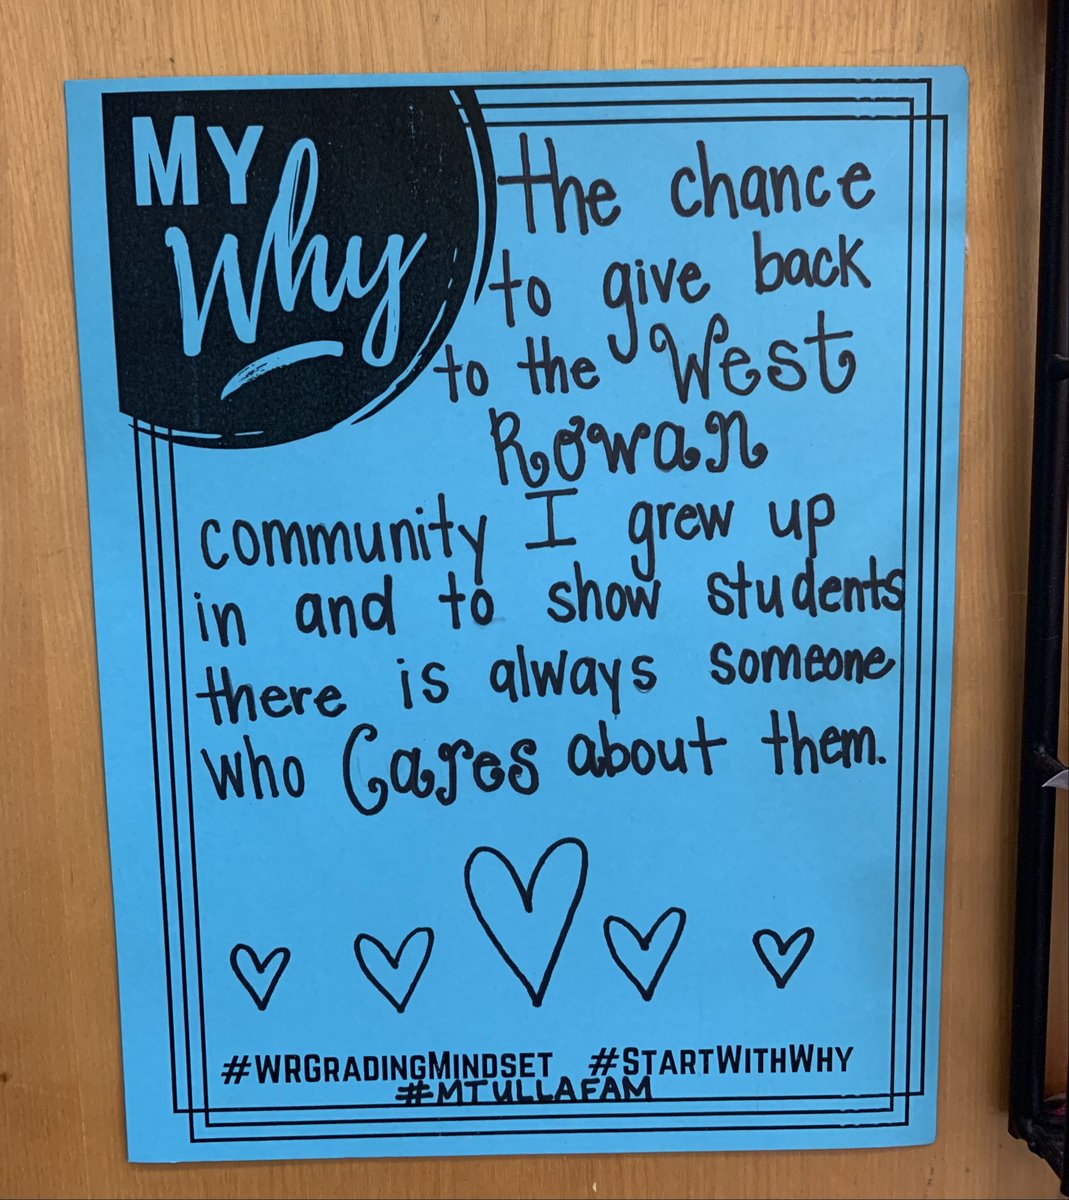 MY
Why
the chance
to give back
to the West
Rowan
community I grew up
in and to show students
there is always someone
who Cares about them.
#WRGradingMindset #StartWithWhy
#MTULLAFAM